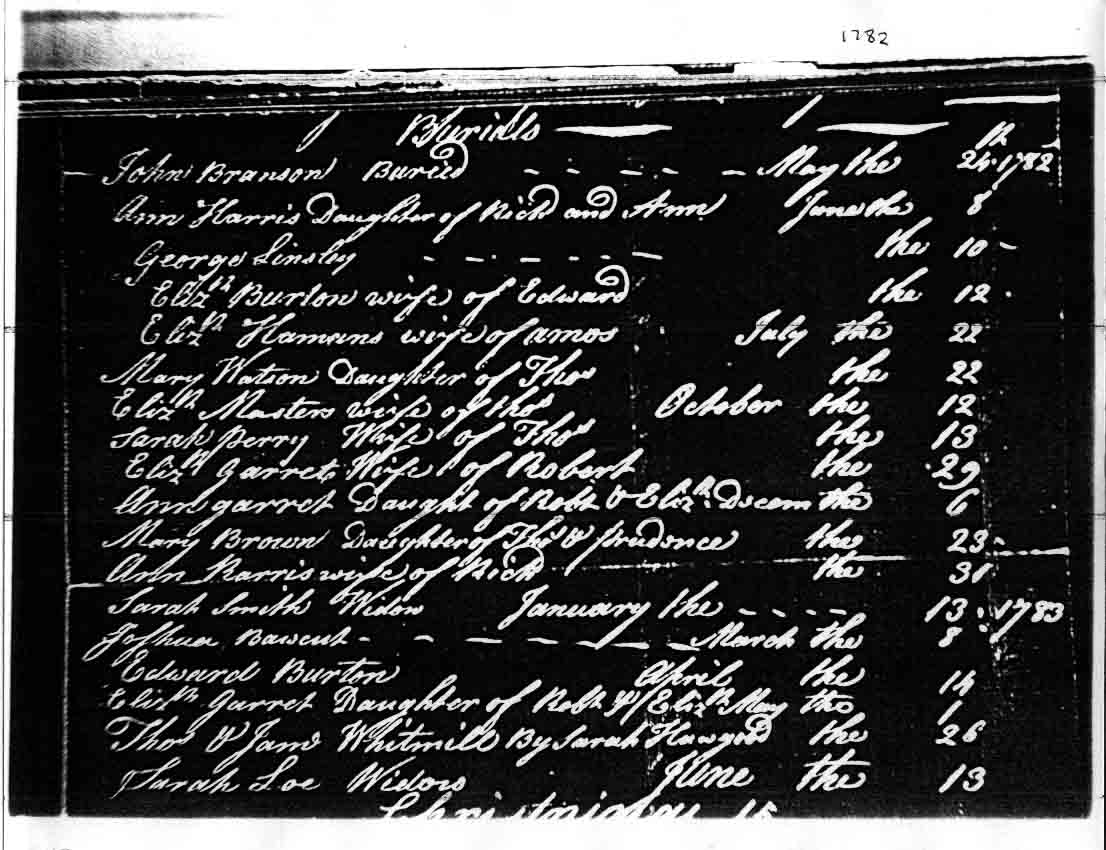 1782
Burials
John Branson Buried - - - - - May the 24th 1782
Ann Harris Daughter of Richd and Ann June the 8
George Linsley - - - - - - the 10 -
Elizth Burton wife of Edward the 12
Elizth Hamans wife of amos July the 22
Mary Watson Daughter of Thos the 22
Elizth Masters wife of thos October the 12
Sarah Perry Whife of Thos the 13
Elizth Garret Wife of Robert the 29
Ann garret Daught of Robt & Elizth Decem the 6
Mary Brown Daughter of Thos & prudence the 23 -
Ann Harris wife of Richd the 31
Sarah Smith Widow January the - - - - 13 1783
Joshua Bawcut - - - - - - - March the 8
Edward Burton April the 14
Elizth Garret Daughter of Robt & Elizth May the 1
Thos & Jams Whitmill By Sarah Hawgood the 26
Sarah Loe Widow June the 13